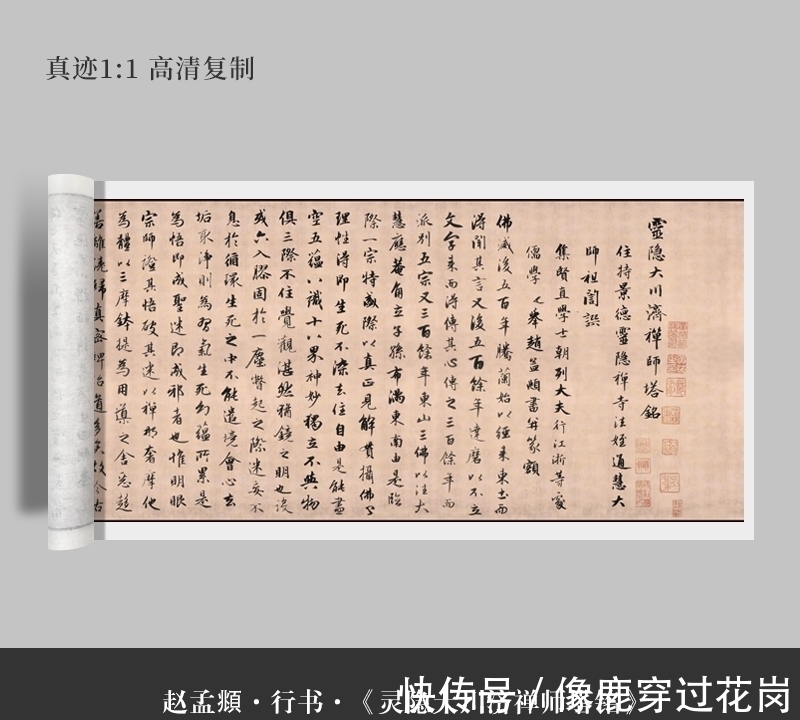 真迹1:1 高清复制
靈隐大川濟禅師塔銘
住持景德靈隐禅寺法姪通慧大
師祖誾譔
集賢直學士朝列大夫行江浙等處
儒學提舉趙孟頫書并篆額
佛滅後五百年騰蘭始以經来東土而
得聞其言又後五百餘年達磨以不立
文字来而得傳其心傳之三百餘年而
派別五宗又三百餘年東山三佛以法大
慧應菴角立子孫布滿東南由是臨
際一宗特盛際以真正見解貫攝佛了
理性得即生死不染去住自由是能盡
空五蕴以識十八界神妙獨立不與物
俱三際不住覺觀湛然猶鏡之明也没
或六入膠固於一塵瞥起之際迷妄不
息於循環生死之中不能遣境會心去
垢取淨則為習氣生死勾蕴所累是
為悟即成聖迷即成邪者也惟明眼
宗師證其悟破其迷以禅那奢摩他
為體以三摩鉢提為用導之含忍趨
赵孟頫·行书·《灵隐大川济禅师塔铭》
快传号 / 像鹿穿过花岗